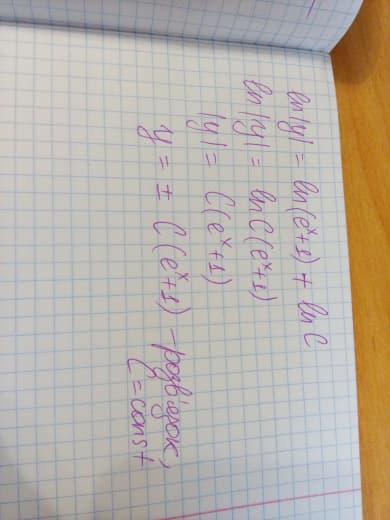 ln|y| = ln(eˣ+1) + ln C
ln|y| = ln C(eˣ+1)
|y| = C(eˣ+1)
y = ± C(eˣ+1) – розв'язок,
C = const